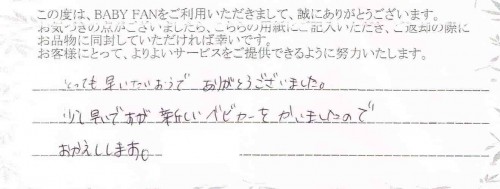 この度は、BABY FANをご利用いただきまして、誠にありがとうございます。
お気づきの点がございましたら、こちらの用紙にご記入いただき、ご返却の際に
お品物に同封していただければ幸いです。
お客様にとって、よりよいサービスをご提供できるように努力いたします。
とっても早いたいおうで ありがとうございました。
少し早いですが 新しいベビカーをかいましたので
おかえしします。